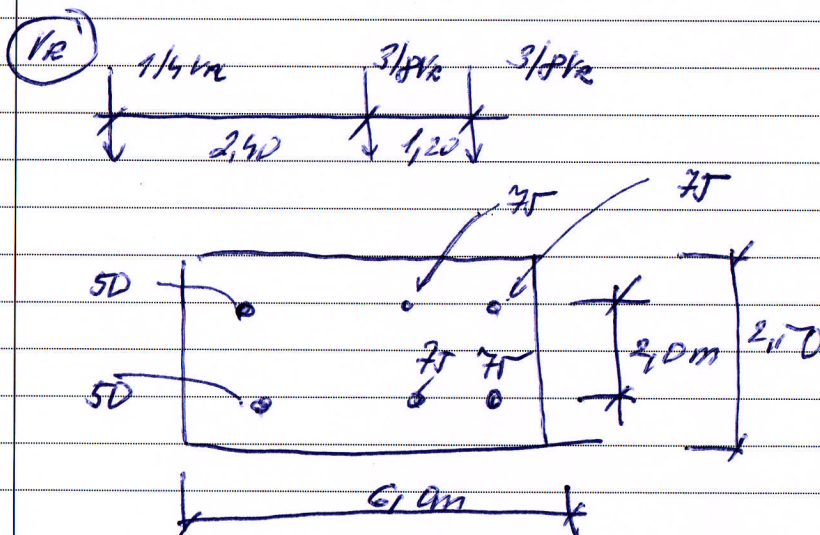 VR 1/4 VR 3/8VR 3/8VR
2,40 1,20
75 75
50
75 75 2,0m
50
6,0m